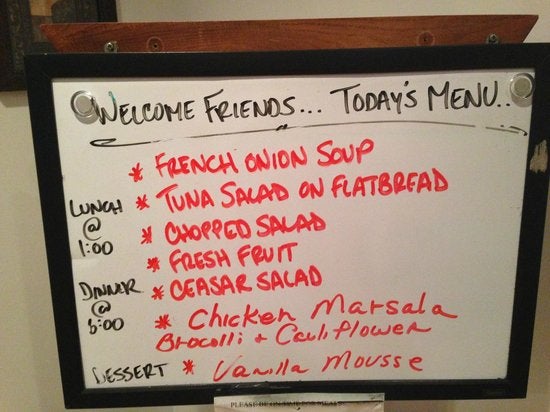 WELCOME FRIENDS... TODAY'S MENU..
* FRENCH ONION SOUP
* TUNA SALAD ON FLATBREAD
LUNCH @ 1:00
* CHOPPED SALAD
* FRESH FRUIT
DINNER @ 6:00
* CEASAR SALAD
* Chicken Marsala
Brocolli + Cauliflower
DESSERT * Vanilla Mousse
PLEASE BE ON TIME FOR MEALS